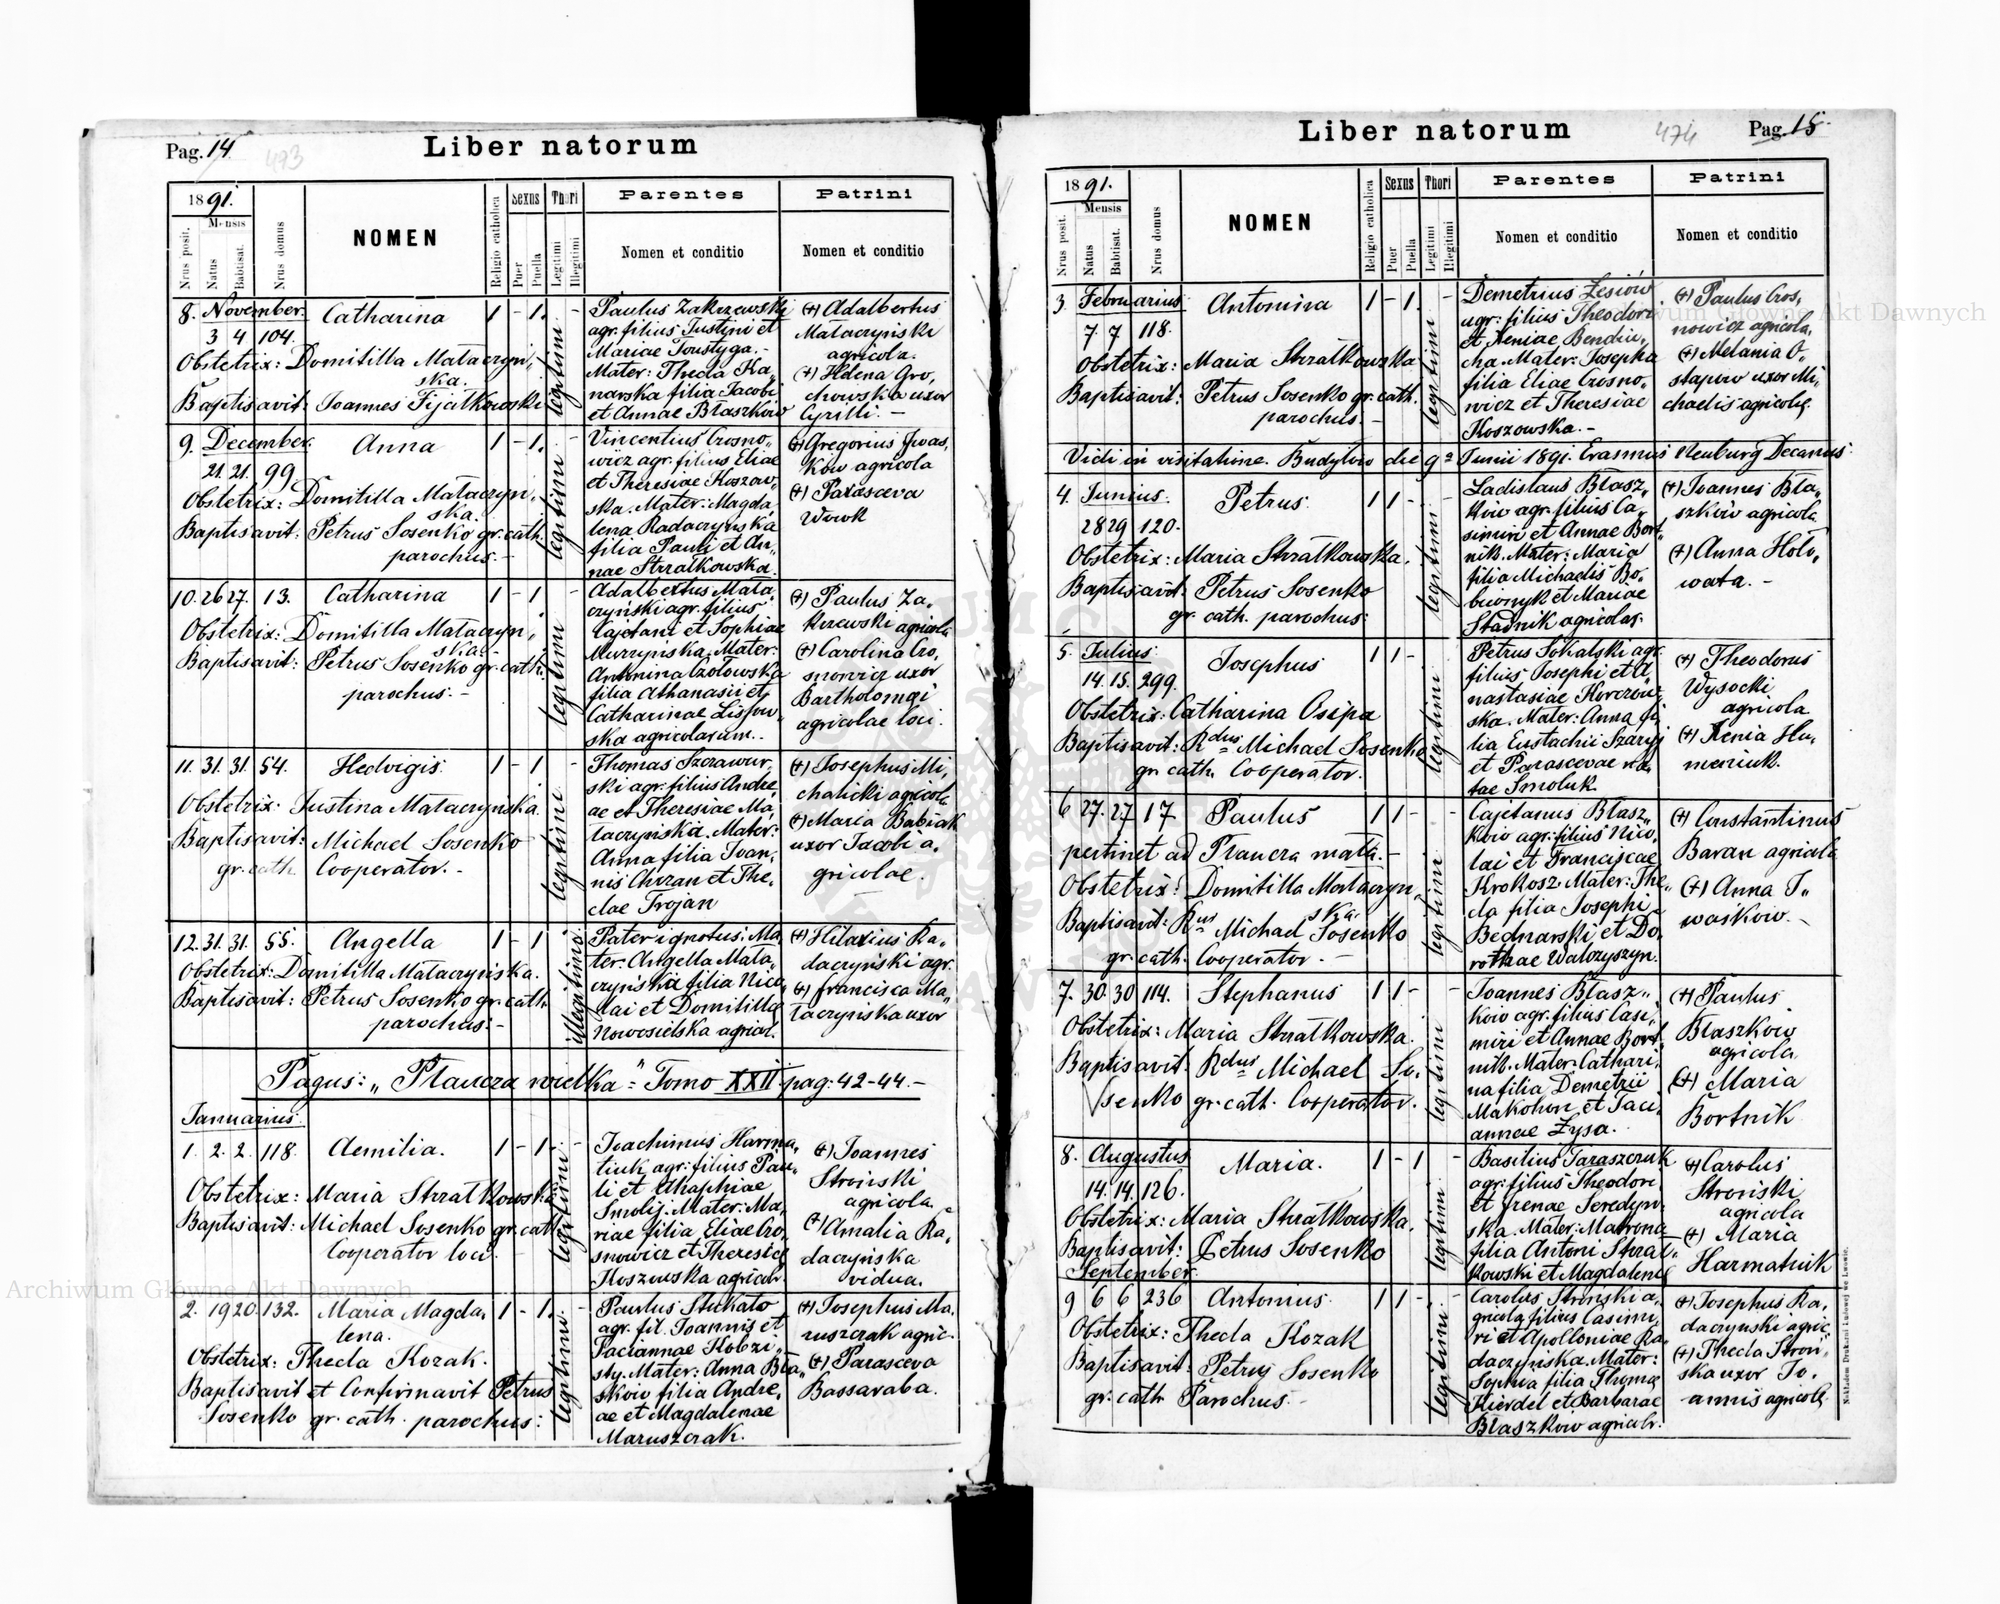 Pag. 14
473
Liber natorum
1891.
Mensis
Nrus posit.
Natus
Babtisat.
Nrus domus
NOMEN
Religio catholica
Sexus
Puer
Puella
Thori
Legitimi
Illegitimi
Parentes
Nomen et conditio
Patrini
Nomen et conditio
8. November.
3 4 104.
Catharina
1 - 1. -
legitimi
Obstetrix: Domitilla Mataczyń„
ska.
Baptisavit: Joannes Fijałkowski
Paulus Zakrzewski
agr. filius Justini et
Mariae Toustyga.-
Mater: Thecla Ka„
narska filia Jacobi
et Annae Błaszków
(+) Adalbertus
Mataczyński
agricola.
(+) Helena Gro„
chowska uxor
Cyrilli. -
9. December.
21. 21. 99
Anna
1 - 1. -
legitimi
Obstetrix: Domitilla Mataczyń„
ska.
Baptisavit: Petrus Sosenko gr. cath.
parochus. -
Vincentius Crosno„
wicz agr. filius Eliae
et Theresiae Koszow„
ska. Mater: Magda„
lena Radaczyńska
filia Pauli et An„
nae Strzałkowska.
(+) Gregorius Iwas„
ków agricola
(+) Parasceva
Wowk
10. 26 27. 13. Catharina 1 - 1 -
legitimi
Obstetrix: Domitilla Mataczyń„
ska.
Baptisavit: Petrus Sosenko gr. cath.
parochus: -
Adalbertus Mata„
czyński agr. filius
Cajetani et Sophiae
Murzyńska. Mater:
Antonina Czołowska
filia Athanasii et
Catharinae Lissow„
ska agricolarum..
(+) Paulus Za„
krzewski agricola
(+) Carolina Cro„
snowicz uxor
Bartholomaei
agricolae loci.
11. 31. 31. 54. Hedvigis. 1 - 1 -
legitimi
Obstetrix: Justina Mataczyńska.
Baptisavit: Michael Sosenko
gr. cath. Cooperator. -
Thomas Szczawur„
ski agr. filius Andre„
ae et Theresiae Ma„
taczyńska. Mater:
Anna filia Joan„
nis Chrzan et The„
clae Trojan
(+) Josephus Mi„
chalicki agricola
(+) Maria Babiak
uxor Jacobi a„
gricolae.
12. 31. 31. 55. Angella 1 - 1
illegitimi
Obstetrix: Domitilla Mataczyńska.
Baptisavit: Petrus Sosenko gr. cath.
parochus: -
Pater ignotus: Ma„
ter: Angella Mata„
czyńska filia Nico„
lai et Domitilla
Nowosielska agricol.
(+) Hilarius Ra„
daczyński agr.
(+) Francisca Ma„
taczyńska uxor
Pagus: „Płaucza wielka" Tomo XXII pag: 42-44. -
Januarius.
1. 2. 2. 118. Aemilia. 1 - 1. -
legitimi
Obstetrix: Maria Strzałkowska.
Baptisavit: Michael Sosenko gr. cath.
Cooperator loci.
Joachimus Harma„
tiuk agr. filius Pau„
li et Ahaphiae
Smolij. Mater: Ma„
riae filia Eliae Cro„
snowicz et Theresiae
Koszowska agricolr.
(+) Joannes
Stroński
agricola.
(+) Amalia Ra„
daczyńska
vidua.
2. 19 20. 132. Maria Magda„
lena.
1 - 1. -
legitimi
Obstetrix: Thecla Kozak.
Baptisavit et Confirmavit Petrus
Sosenko gr. cath. parochus:
Paulus Stukało
agr. fil. Joannis et
Pacannae Kobzi„
sty. Mater: Anna Bła„
sków filia Andre„
ae et Magdalenae
Maruszczak.
(+) Josephus Ma„
ruszczak agric.
(+) Parasceva
Bassaraba.
Liber natorum
474
Pag. 15
1891.
Mensis
Nrus posit.
Natus
Babtisat.
Nrus domus
NOMEN
Religio catholica
Sexus
Puer
Puella
Thori
Legitimi
Illegitimi
Parentes
Nomen et conditio
Patrini
Nomen et conditio
3 Februarius
7 7 118.
Antonina
1 - 1. -
legitimi
Obstetrix: Maria Strzałkowska
Baptisavit: Petrus Sosenko gr. cath.
parochus. -
Demetrius Łesiów
agr. filius Theodori
et Xeniae Bendiu„
cha. Mater: Josepha
filia Eliae Crosno„
wicz et Theresiae
Koszowska. -
(+) Paulus Cros„
nowicz agricola.
(+) Melania O„
stapiw uxor Mi„
chaelis agricola.
Vidi in visitatione. Budyłów die 9ª Junii 1891. Erasmus Neuburg Decanus.
4. Junius.
28 29 120.
Petrus
1 1 -
legitimi
Obstetrix: Maria Strzałkowska.
Baptisavit: Petrus Sosenko
gr. cath. parochus:
Ladislaus Błasz„
ków agr. filius Ca„
simiri et Annae Bort„
nik. Mater: Maria
filia Michaelis Bo„
biwnyk et Mariae
Stadnik agricolar.
(+) Joannes Bła„
szków agricola
(+) Anna Hoło„
wata. -
5. Julius.
14. 15. 299.
Josephus
1 1 -
legitimi
Obstetrix: Catharina Osipa
Baptisavit: Rdus Michael Sosenko
gr. cath. Cooperator.
Petrus Sokalski agr.
filius Josephi et A„
nastasiae Korczow„
ska. Mater: Anna fi„
lia Eustachii Szaryj
et Parascevae na„
tae Smoluk.
(+) Theodorus
Wysocki
agricola
(+) Xenia Hu„
meniuk.
6 27. 27 17 Paulus 1 1 - -
legitimi
pertinet ad Płaucza mała. -
Obstetrix: Domitilla Mataczyń„
ska.
Baptisavit: Rdus Michael Sosenko
gr. cath. Cooperator. -
Cajetanus Błasz„
ków agr. filius Nico„
lai et Franciscae
Krokosz. Mater: The„
cla filia Josephi
Bednarski et Do„
rothae Wałczyszyn.
(+) Constantinus
Baran agricola
(+) Anna I„
waśków. -
7. 30. 30 114. Stephanus 1 1 - -
legitimi
Obstetrix: Maria Strzałkowska.
Baptisavit: Rdus Michael So„
senko gr. cath. Cooperator.
Joannes Błasz„
ków agr. filius Casi„
miri et Annae Bort„
nik. Mater: Cathari„
na filia Demetrii
Makohon et Taci„
annae Łysa.
(+) Paulus
Błaszków
agricola
(+) Maria
Bortnik
8. Augustus
14. 14. 126.
Maria.
1 - 1 -
legitimi
Obstetrix: Maria Strzałkowska.
Baptisavit: Petrus Sosenko
Basilius Taraszczuk
agr. filius Theodori
et Irenae Seredyn„
ska. Mater: Matrona
filia Antoni Strzał„
kowski et Magdalena
(+) Carolus
Stroński
agricola
(+) Maria
Harmatiuk
September
9 6 6 236 Antonius. 1 1 - -
legitimi
Obstetrix: Thecla Kozak
Baptisavit: Petrus Sosenko
gr. cath. Parochus. -
Carolus Stroński a„
gricola filius Casimi„
ri et Apolloniae Ra„
daczyńska. Mater:
Sophia filia Thoma
Kierdel et Barbarae
Błaszków agricolr.
(+) Josephus Ra„
daczyński agric.
(+) Thecla Stroń„
ska uxor Jo„
annis agricola
Nakładem Drukarni Ludowej we Lwowie.
Archiwum Główne Akt Dawnych
Archiwum Główne Akt Dawnych